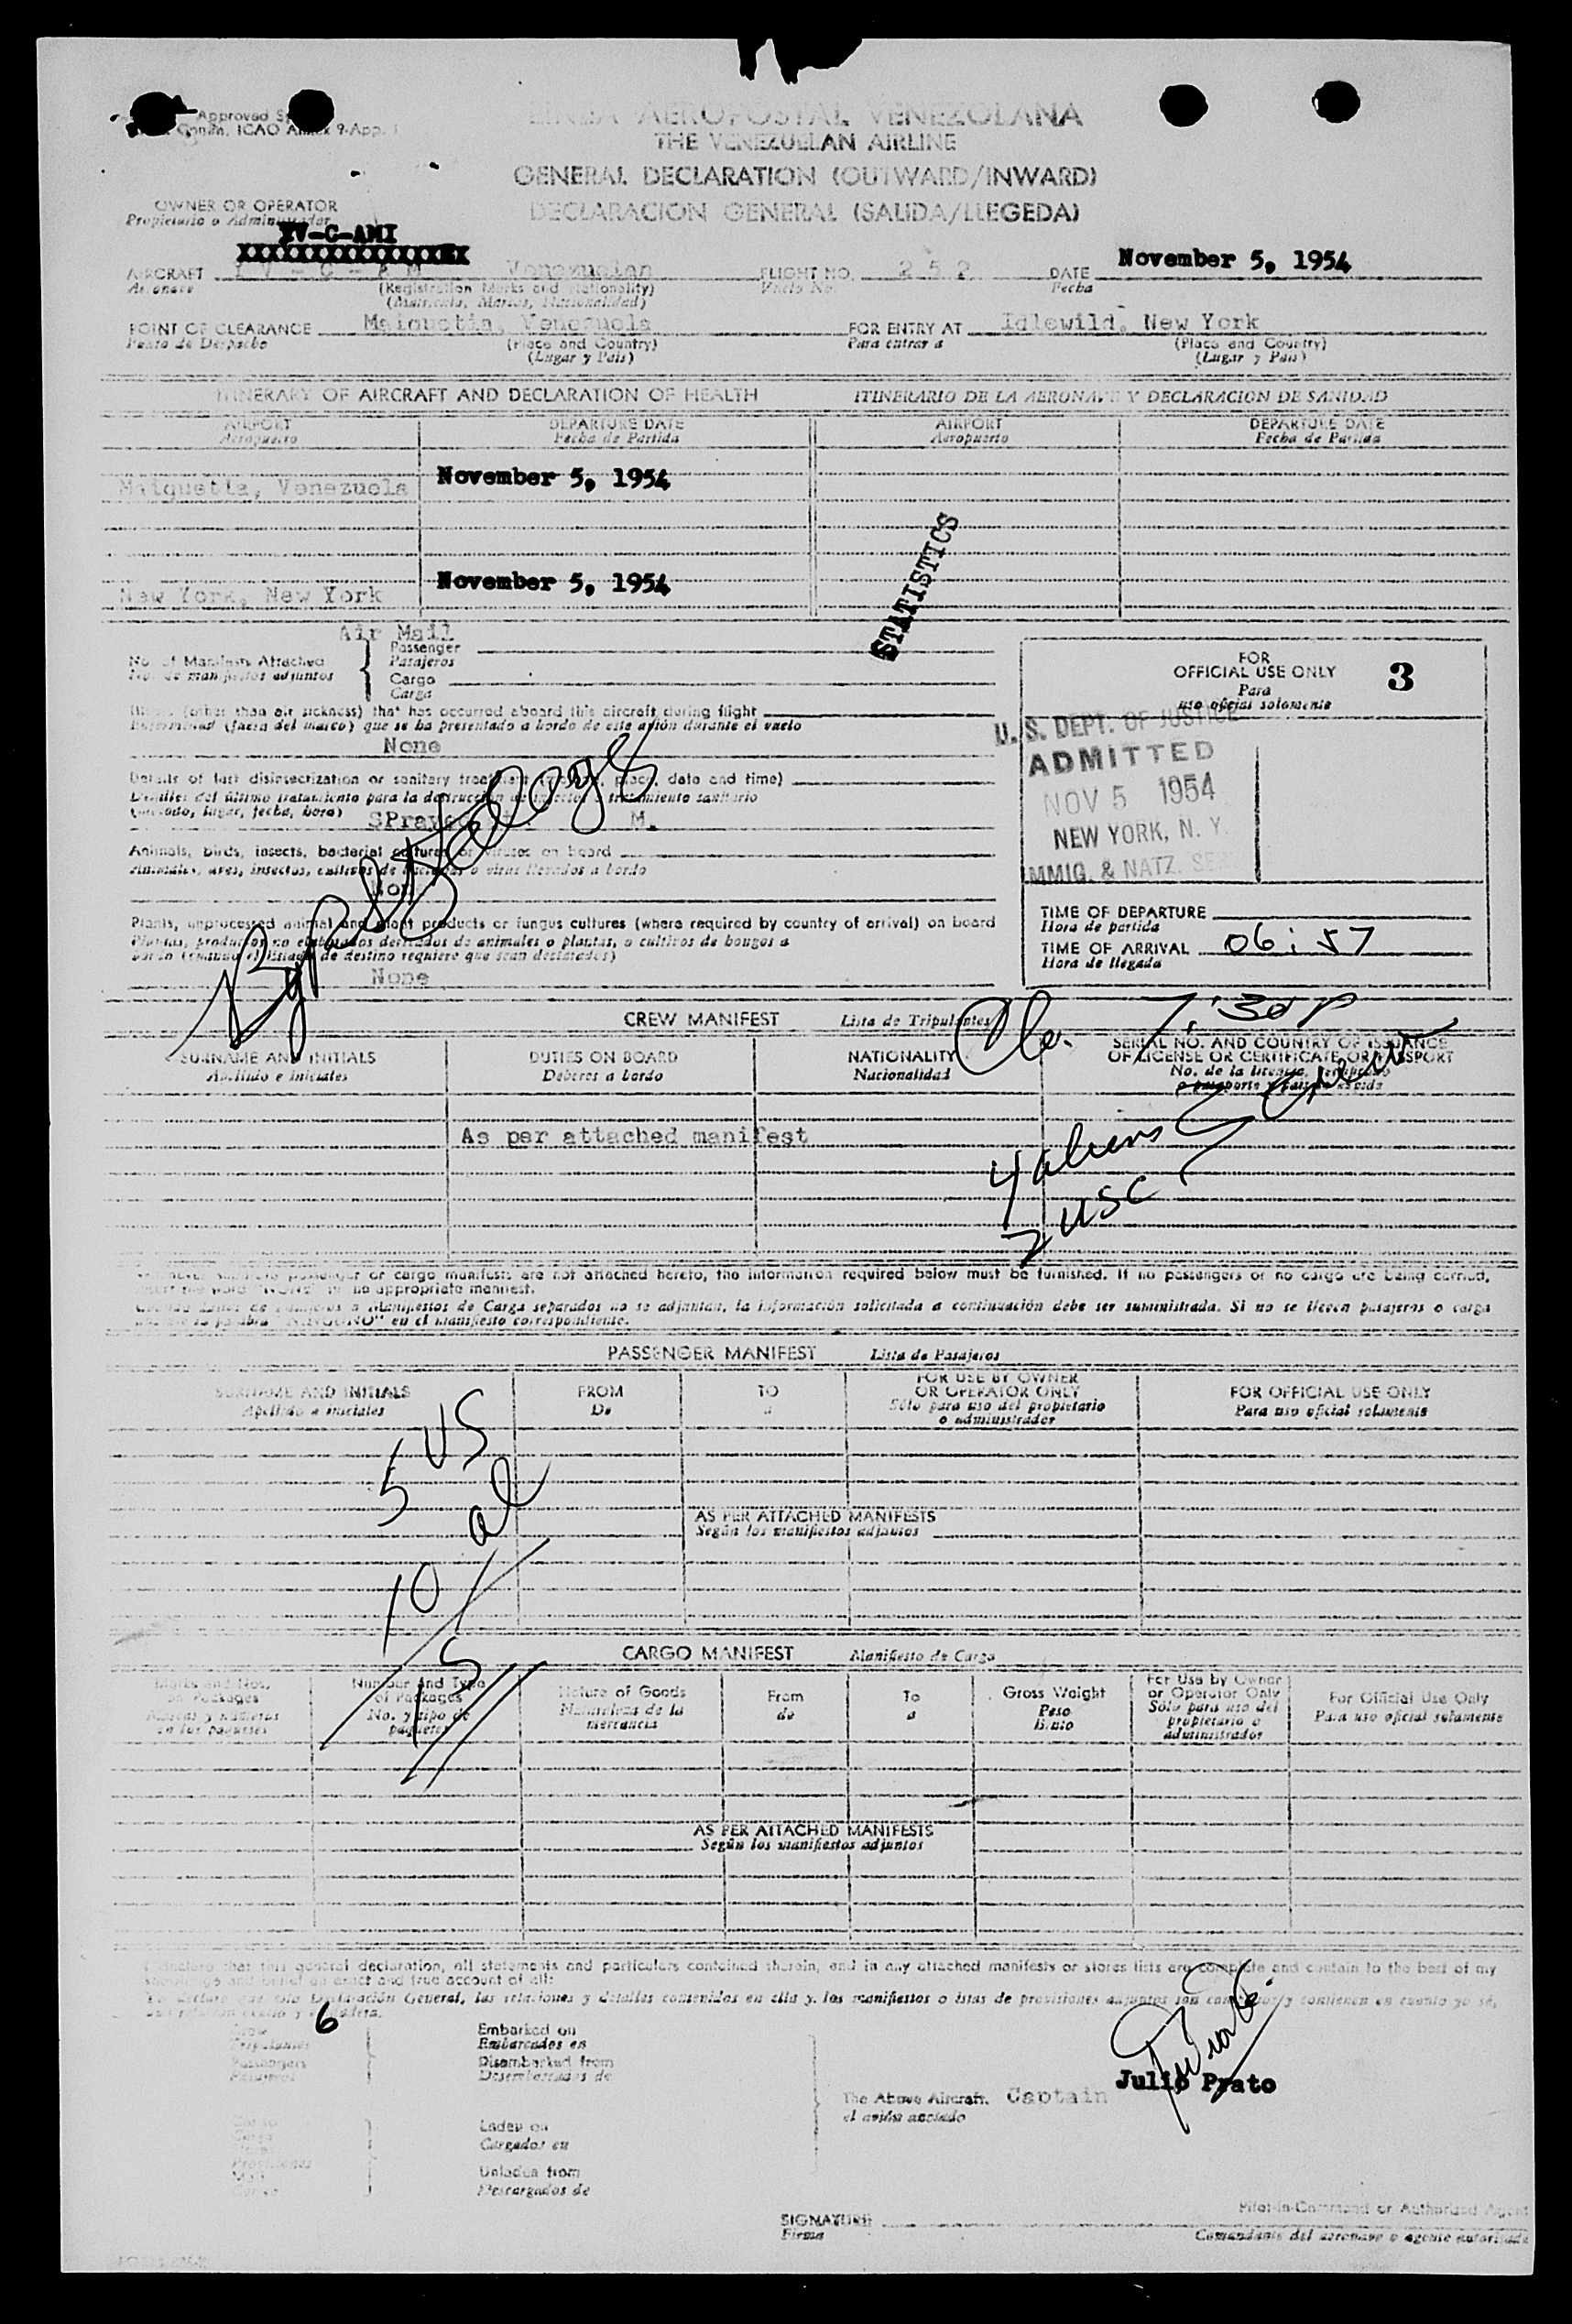 Approved
Conán. ICAO Annex 9-App. 1
LINEA AEROPOSTAL VENEZOLANA
THE VENEZUELAN AIRLINE
GENERAL DECLARATION (OUTWARD/INWARD)
DECLARACION GENERAL (SALIDA/LLEGEDA)
OWNER OR OPERATOR
Propietario o Administrador
YV-C-AMI
XXXXXXXXXXXXXXXX
AIRCRAFT YV - C - AM Venezuelan FLIGHT NO. 252 DATE November 5, 1954
Aeronave (Registration Marks and Nationality) Vuelo No. Fecha
(Matrícula, Marcas, Nacionalidad)
POINT OF CLEARANCE Maiquetia, Venezuela FOR ENTRY AT Idlewild, New York
Punto de Despacho (Place and Country) Para entrar a (Place and Country)
(Lugar y País) (Lugar y País)
ITINERARY OF AIRCRAFT AND DECLARATION OF HEALTH ITINERARIO DE LA AERONAVE Y DECLARACION DE SANIDAD
AIRPORT DEPARTURE DATE AIRPORT DEPARTURE DATE
Aeropuerto Fecha de Partida Aeropuerto Fecha de Partida
Maiquetia, Venezuela November 5, 1954
New York, New York November 5, 1954
STATISTICS
Air Mail
No. of Manifests Attached Passenger
No. de manifiestos adjuntos Pasajeros
Cargo
Carga
FOR
OFFICIAL USE ONLY 3
Para
uso oficial solamente
U. S. DEPT. OF JUSTICE
ADMITTED
NOV 5 1954
NEW YORK, N. Y.
IMMIG. & NATZ. SER
Illness (other than air sickness) that has occurred aboard this aircraft during flight
Enfermedad (fuera del mareo) que se ha presentado a bordo de este avión durante el vuelo
None
Details of last disinsectization or sanitary treatment (method, place, date and time)
Detalles del último tratamiento para la destrucción de insectos o tratamiento sanitario
(método, lugar, fecha, hora)
SPrayed M.
Animals, birds, insects, bacterial cultures or viruses on board
Animales, aves, insectos, cultivos de bacterias o virus llevados a bordo
None
Plants, unprocessed animal and plant products or fungus cultures (where required by country of arrival) on board
Plantas, productos no elaborados derivados de animales o plantas, o cultivos de hongos a
bordo (cuando el listado de destino requiere que sean declarados)
None
TIME OF DEPARTURE
Hora de partida
TIME OF ARRIVAL 06:57
Hora de llegada
CREW MANIFEST Lista de Tripulantes
7:30 P
SURNAME AND INITIALS DUTIES ON BOARD NATIONALITY SERIAL NO. AND COUNTRY OF ISSUANCE
OF LICENSE OR CERTIFICATE OR PASSPORT
Apellido e iniciales Deberes a bordo Nacionalidad No. de la licencia, certificado
o pasaporte y país de salida
As per attached manifest
4 aliens Crew
2 USC
passenger or cargo manifests are not attached hereto, the information required below must be furnished. If no passengers or no cargo are being carried,
insert the word "NONE" in the appropriate manifest.
Cuando Listas de Pasajeros o Manifiestos de Carga separados no se adjuntan, la información solicitada a continuación debe ser suministrada. Si no se llevan pasajeros o carga
la palabra "NINGUNO" en el Manifiesto correspondiente.
PASSENGER MANIFEST Lista de Pasajeros
SURNAME AND INITIALS FROM TO FOR USE BY OWNER
OR OPERATOR ONLY FOR OFFICIAL USE ONLY
Apellido e iniciales De a Sólo para uso del propietario
o administrador Para uso oficial solamente
5 US
10 al
15
AS PER ATTACHED MANIFESTS
Según los manifiestos adjuntos
CARGO MANIFEST Manifiesto de Carga
Marks and Nos. on Packages Number and Type of Packages Nature of Goods From To Gross Weight For Use by Owner or Operator Only For Official Use Only
Marcas y números en los paquetes No. y tipo de paquetes Naturaleza de la mercancía de a Peso Bruto Sólo para uso del propietario o administrador Para uso oficial solamente
AS PER ATTACHED MANIFESTS
Según los manifiestos adjuntos
I declare that this general declaration, all statements and particulars contained therein, and in any attached manifests or stores lists are complete and contain to the best of my
knowledge and belief an exact and true account of all:
Yo declaro que esta Declaración General, las relaciones y detalles contenidos en ella y los manifiestos o listas de provisiones adjuntas son completos y contienen en cuanto yo sé,
una relación exacta y verdadera.
6
Crew
Tripulantes
Passengers
Pasajeros
Embarked on
Embarcados en
Disembarked from
Desembarcados de
Laden on
Cargados en
Unladen from
Descargados de
The Above Aircraft. Captain Julio Prato
el avión anotado
Pilot-in-Command or Authorized Agent
SIGNATURE
Firma Comandante del aeronave o agente autorizado